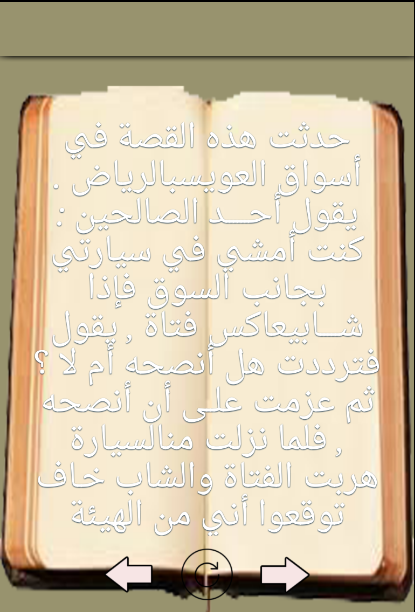 حدثت هذه القصة في
أسواق العويسبالرياض .
يقول أحــد الصالحين :
كنت أمشي في سيارتي
بجانب السوق فإذا
شــابيعاكس فتاة , يقول
فترددت هل أنصحه أم لا ؟
ثم عزمت علـى أن أنصحه
, فلما نزلت منالسيارة
هربت الفتاة والشاب خـاف
توقعوا أني من الهيئة